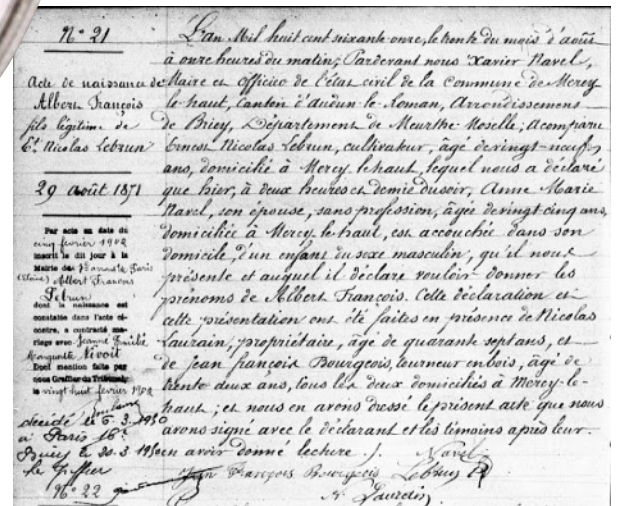 N° 21
Acte de naissance de
Albert François
fils légitime de
Et Nicolas Lebrun
29 août 1871
Par acte en date du
cinq février 1902
inscrit le dit jour à la
Mairie de Paris
(Seine) Albert François
Lebrun
dont la naissance est
constatée dans l'acte ci-
contre, a contracté ma-
riage avec Jeanne Emilie
Marguerite Nivoit
Dont mention faite par
nous Greffier du Tribunal,
le vingt huit février 1902
décédé le 6-3-1950
à Paris 16e
Briey le 20-3-1950
le Greffier
N° 22
L'an Mil huit cent soixante onze, le trente du mois d'août
à onze heures du matin; Pardevant nous Xavier Navel,
Maire et Officier de l'état civil de la Commune de Mercy
le haut, Canton d'Audun-le-Roman, Arrondissement
de Briey, Département de Meurthe Moselle; a comparu
Ernest Nicolas Lebrun, cultivateur, âgé de vingt-neuf
ans, domicilié à Mercy le haut, lequel nous a déclaré
que hier, à deux heures et demie du soir, Anne Marie
Navel, son épouse, sans profession, âgée de vingt cinq ans,
domiciliée à Mercy-le-haut, est accouchée dans son
domicile, d'un enfant du sexe masculin, qu'il nous
présente et auquel il déclare vouloir donner les
prénoms de Albert François. Cette déclaration et
cette présentation ont été faites en présence de Nicolas
Laurain, propriétaire, âgé de quarante sept ans, et
de Jean françois Bourgeois, tourneur en bois, âgé de
trente deux ans, tous les deux domiciliés à Mercy-le-
haut; et nous en avons dressé le présent acte que nous
avons signé avec le déclarant et les témoins après leur
en avoir donné lecture ./.
Navel
Jean François Bourgeois Lebrun
N. Laurain